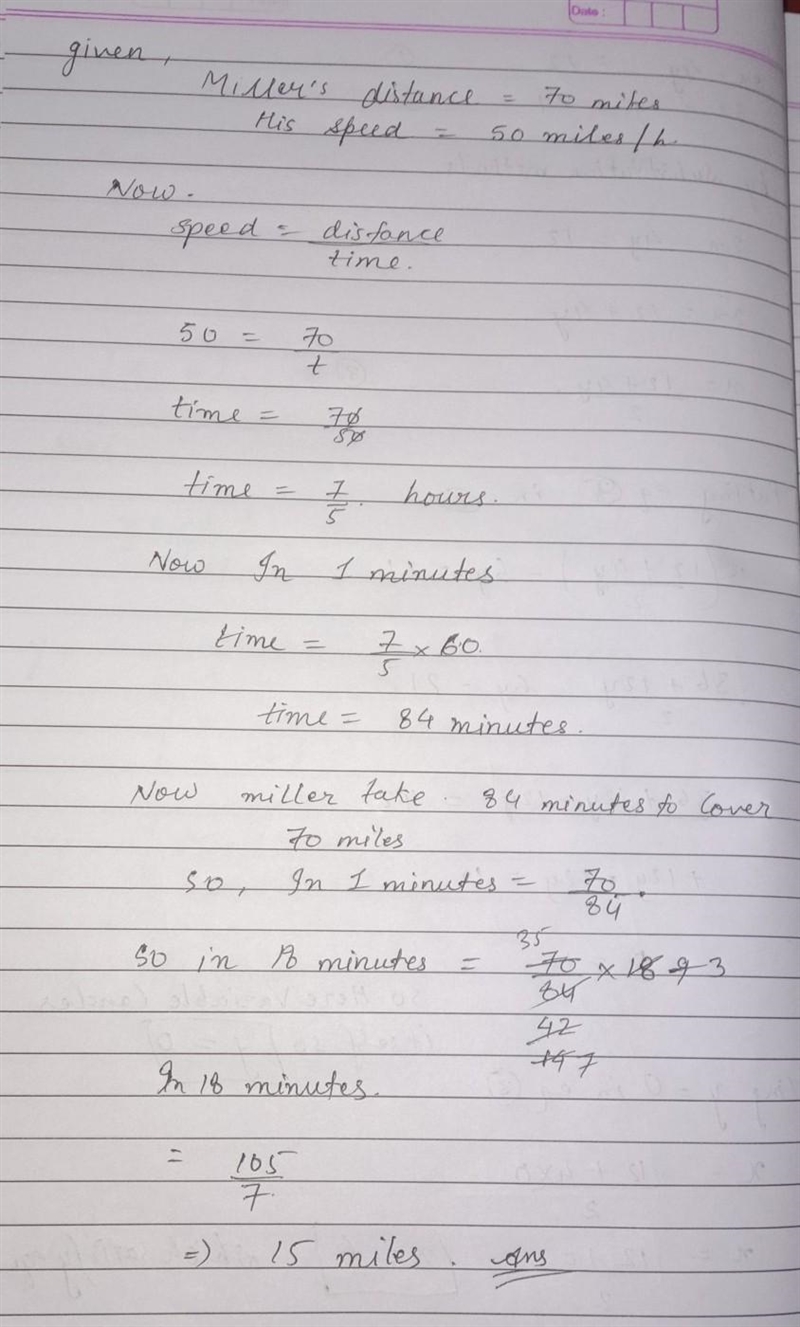 Date:
given,
Miller's distance = 70 miles
His speed = 50 miles/h.
Now.
speed = distance
time.
50 = 70
t
time = 70
50
time = 7 hours.
5
Now In 1 minutes
time = 7 × 60.
5
time = 84 minutes.
Now miller take. 84 minutes to cover
70 miles
so, In 1 minutes = 70
84.
35
so in 18 minutes = 70 × 18 9 3
84
42
14 7
In 18 minutes.
= 105
7.
=) 15 miles. Ans